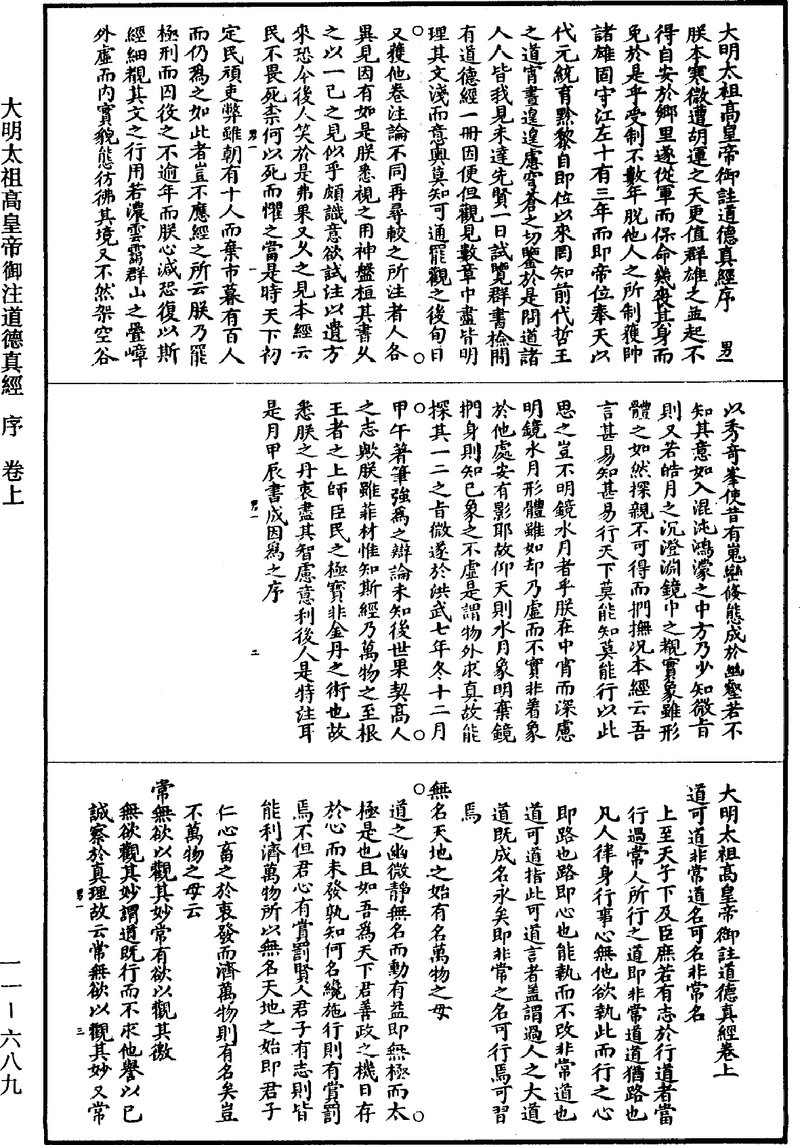 大明太祖高皇帝御註道德真經序　男一
朕本寒微遭胡運之天更值群雄之並起不
得自安於鄉里遂從軍而保命幾喪其身而
免於是乎受制不數年脫他人之所制獲帥
諸雄固守江左十有三年而即帝位奉天以
代元統育黔黎自即位以來罔知前代哲王
之道宵晝遑遑慮穹蒼之切鑒於是問道諸
人人皆我見未達先賢一日試覽群書檢間
有道德經一冊因便但觀見數章中盡皆明
理其文淺而意奧莫知可通罷觀之後旬日
又獲他卷注論不同再尋較之所注者人各
異見因有如是朕悉視之用神盤桓其書久
之以一己之見似乎頗識意欲試注以遺方
來恐今後人笑於是弗果又久之見本經云
民不畏死柰何以死而懼之當是時天下初
定民頑吏弊雖朝有十人而棄市暮有百人
而仍為之如此者豈不應經之所云朕乃罷
極刑而囚役之不逾年而朕心減恐復以斯
經細觀其文之行用若濃雲靄群山之疊嶂
外虛而內實貌態彷彿其境又不然架空谷
以秀奇峯使昔有嵬巒倏態成於幽壑若不
知其意如入混沌鴻濛之中方乃少知微旨
則又若皓月之沉澄淵鏡中之覩實象雖形
體之如然探親不可得而捫撫況本經云吾
言甚易知甚易行天下莫能知莫能行以此
思之豈不明鏡水月者乎朕在中宵而深慮
明鏡水月形體雖如却乃虛而不實非著象
於他處安有影耶故仰天則水月象明棄鏡
捫身則知己象之不虛是謂物外求真故能
探其一二之旨微遂於洪武七年冬十二月
甲午著筆強為之辯論未知後世果契高人
之志歟朕雖菲材惟知斯經乃萬物之至根
王者之上師臣民之極寶非金丹之術也故
悉朕之丹衷盡其智慮意利後人是特注耳
是月甲辰書成因為之序
男一　二
大明太祖高皇帝御註道德真經卷上
道可道非常道名可名非常名
上至天子下及臣庶若有志於行道者當
行過常人所行之道即非常道道猶路也
凡人律身行事心無他欲執此而行之心
即路也路即心也能執而不改非常道也
道可道指此可道言者蓋謂過人之大道
道既成名永矣即非常之名可行焉可習
焉
無名天地之始有名萬物之母
道之幽微靜無名而動有益即無極而太
極是也且如吾為天下君善政之機日存
於心而未發孰知何名纔施行則有賞罰
焉不但君心有賞罰賢人君子有志則皆
能利濟萬物所以無名天地之始即君子
仁心畜之於衷發而濟萬物則有名矣豈
不萬物之母云
常無欲以觀其妙常有欲以觀其徼
無欲觀其妙謂道既行而不求他譽以己
誠察於真理故云常無欲以觀其妙又常
男一　三
大明太祖高皇帝御注道德真經　序　卷上
一一－六八九